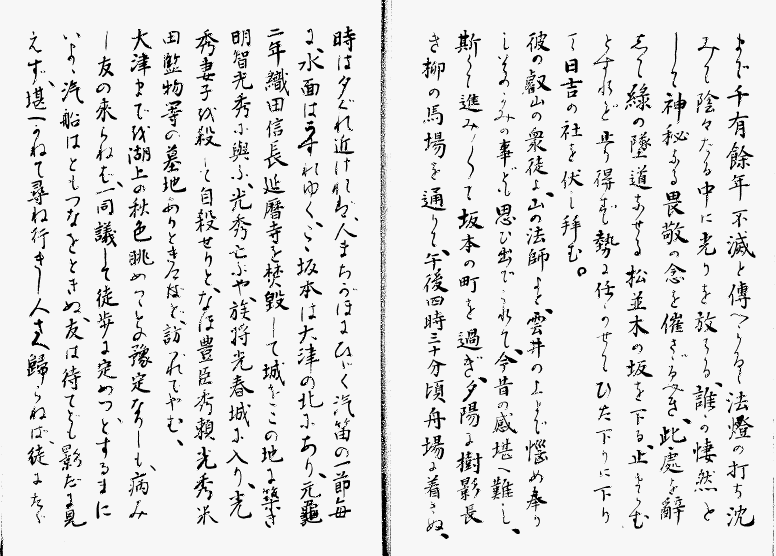 まで千有餘年不滅と傳へらるゝ法燈の打ち沈
みて陰々たる中に光りを放てる、誰か悽然と
して神秘なる畏敬の念を催さざるべき、此處を辭
して綠の墜道なせる松並木の坂を下る、止まらむ
とすれど止り得ず勢に任かせてひた下りに下り
て日吉の社を伏し拜む。
彼の叡山の衆徒よ、山の法師よと、雲井の上まで惱め奉り
しそのかみの事ども思ひ出でられて、今昔の感堪へ難し、
斯くて進みくて坂本の町を過ぎ、夕陽に樹影長
き柳の馬場を通りて、午後四時三十分頃舟場に着きぬ、
時は夕ぐれ近ければ、人まちがほにひゞく汽笛の一節每
に、水面はうすれゆく、こゝ坂本は大津の北にあり、元龜
二年織田信長延曆寺を焚毀して城をこの地に築き
明智光秀に與ふ、光秀亡ぶや、族將光春城に入り、光
秀妻子を殺して自殺せりと、なほ豊臣秀賴光秀米
田監物等の墓地ありときけど、訪れでやむ、
大津まで、湖上の秋色眺めつゝとの豫定なりしも、病み
し友の來らねば、一同議して徒步に定めつ、とするまに
いよゝ汽船はともつなをときぬ、友は待てども影だに見
えず、堪へかねて尋ね行きし人さへ歸らねば、徒にたゝ